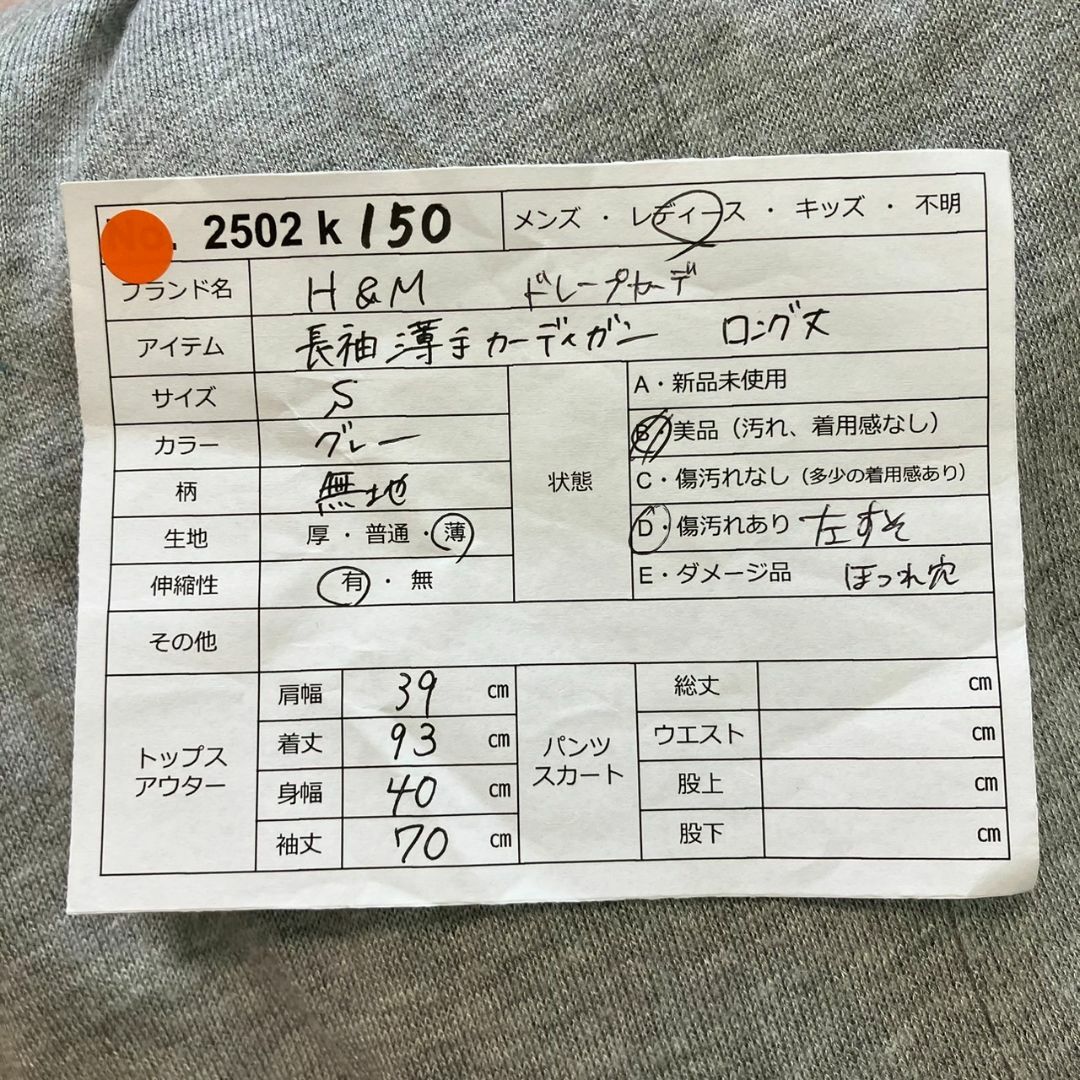 No. 2502 k 150 メンズ ・ レディース ・ キッズ ・ 不明
ブランド名 H&M ドレープカーデ
アイテム 長袖薄手カーディガン ロング丈
サイズ S
カラー グレー
柄 無地
生地 厚 ・ 普通 ・ 薄
伸縮性 有 ・ 無
状態
A・新品未使用
B・美品（汚れ、着用感なし）
C・傷汚れなし（多少の着用感あり）
D・傷汚れあり 左すそ
E・ダメージ品 ほつれ穴
その他
トップス
アウター
肩幅 39 ㎝
着丈 93 ㎝
身幅 40 ㎝
袖丈 70 ㎝
パンツ
スカート
総丈 ㎝
ウエスト ㎝
股上 ㎝
股下 ㎝